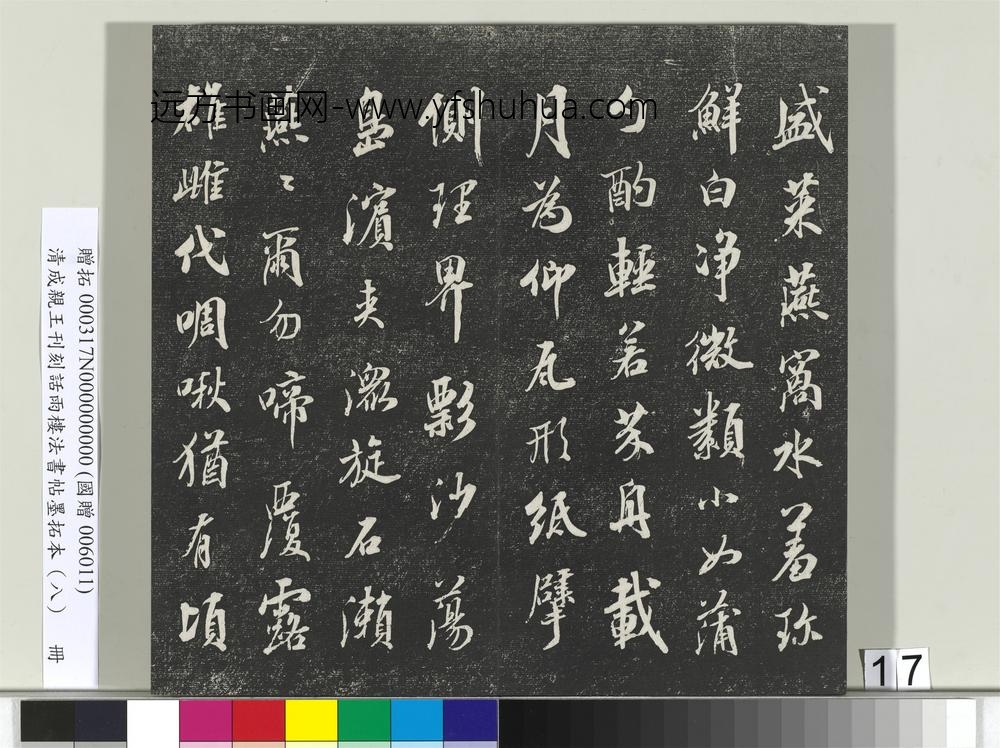 盛菜燕窩水羞珎
鮮白净微類小如蒲
勺酌輕若芥舟載
月為仰瓦形紙擘
側理界沙蕩
濱夾旋石瀨
燕〻爾勿啼覆露
雄雌代啁啾猶有頃
远方书画网-www.yfshuhua.com
贈拓 000317N000000000 (國贈 006011)
清成親王刊刻話雨樓法書帖墨拓本（八） 冊
17